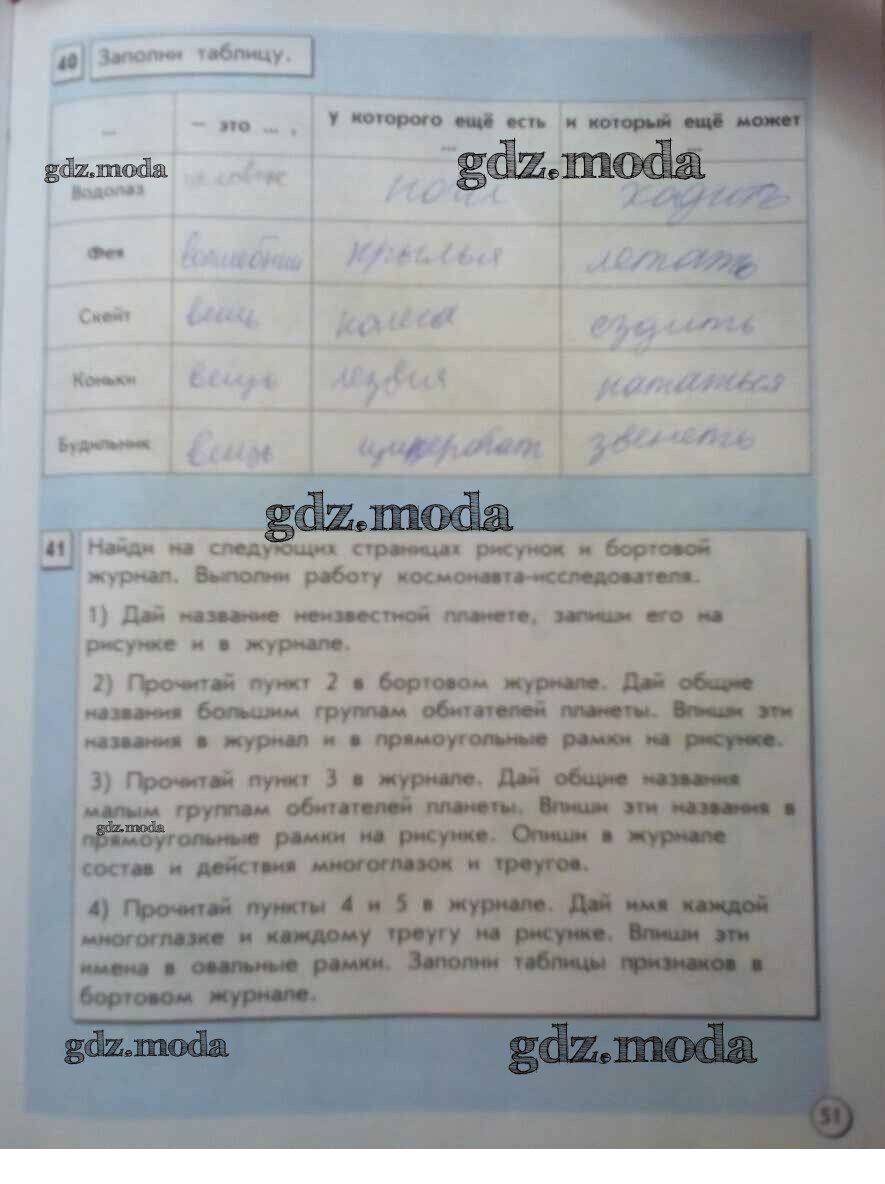 40 Заполни таблицу.
... – это ... , у которого ещё есть ... и который ещё может ...
gdz.moda gdz.moda
Водолаз человек ноги ходить
Фея волшебница крылья летать
Скейт вещь колёса ездить
Коньки вещь лезвия кататься
Будильник вещь циферблат звенеть
gdz.moda
41 Найди на следующих страницах рисунок и бортовой
журнал. Выполни работу космонавта-исследователя.
1) Дай название неизвестной планете, запиши его на
рисунке и в журнале.
2) Прочитай пункт 2 в бортовом журнале. Дай общие
названия большим группам обитателей планеты. Впиши эти
названия в журнал и в прямоугольные рамки на рисунке.
3) Прочитай пункт 3 в журнале. Дай общие названия
малым группам обитателей планеты. Впиши эти названия в
gdz.moda
прямоугольные рамки на рисунке. Опиши в журнале
состав и действия многоглазок и треугов.
4) Прочитай пункты 4 и 5 в журнале. Дай имя каждой
многоглазке и каждому треугу на рисунке. Впиши эти
имена в овальные рамки. Заполни таблицы признаков в
бортовом журнале.
gdz.moda gdz.moda
51